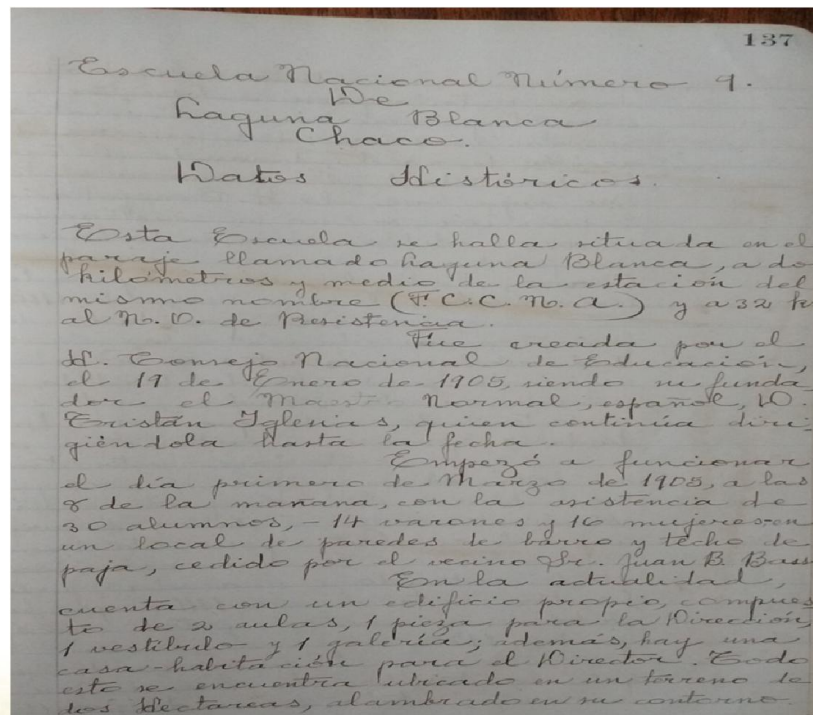 137
Escuela Nacional Número 9.
De
Laguna Blanca
Chaco.
Datos Históricos.
Esta Escuela se halla situada en el
paraje llamado Laguna Blanca, a do
kilómetros y medio de la estación del
mismo nombre (F.C.C.N.A.) y a 32 k
al N.O. de Resistencia.
Fue creada por el
H. Consejo Nacional de Educación,
el 19 de Enero de 1905, siendo su funda
dor el Maestro Normal, español, D.
Tristán Iglesias, quien continúa diri-
giéndola hasta la fecha.
Empezó a funcionar
el día primero de Marzo de 1905, a las
8 de la mañana, con la asistencia de
30 alumnos, - 14 varones y 16 mujeres - en
un local de paredes de barro y techo de
paja, cedido por el vecino Sr. Juan B. Bass
En la actualidad,
cuenta con un edificio propio, compues
to de 2 aulas, 1 pieza para la Dirección,
1 vestíbulo y 1 galería; además, hay una
casa-habitación para el Director. Todo
esto se encuentra ubicado en un terreno de
dos Hectáreas, alambrado en su contorno.